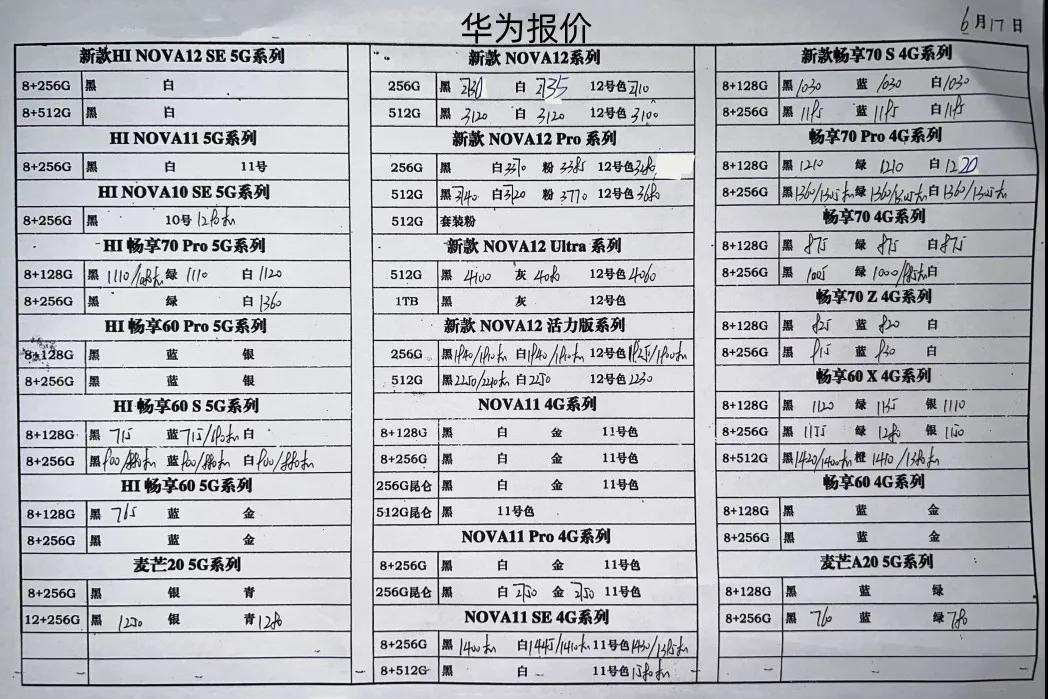 华为报价
6月17日
新款HI NOVA12 SE 5G系列
8+256G 黑 白
8+512G 黑 白
HI NOVA11 5G系列
8+256G 黑 白 11号
HI NOVA10 SE 5G系列
8+256G 黑 10号
HI 畅享70 Pro 5G系列
8+128G 黑 1110 绿 1110 白 1120
8+256G 黑 绿 白 1360
HI 畅享60 Pro 5G系列
8+128G 黑 蓝 银
8+256G 黑 蓝 银
HI 畅享60 S 5G系列
8+128G 黑 715 蓝 715 白
8+256G 黑 蓝 白
HI 畅享60 5G系列
8+128G 黑 765 蓝 金
8+256G 黑 蓝 金
麦芒20 5G系列
8+256G 黑 银 青
12+256G 黑 1250 银 青 1280
新款 NOVA12系列
256G 黑 白 12号色
512G 黑 3120 白 3120 12号色 3100
新款 NOVA12 Pro 系列
256G 黑 白 粉 3385 12号色
512G 黑 白 粉 3770 12号色 3680
512G 套装粉
新款 NOVA12 Ultra 系列
512G 黑 4100 灰 4080 12号色 4060
1TB 黑 灰 12号色
新款 NOVA12 活力版系列
256G 黑 白 12号色
512G 黑 白 2250 12号色 2230
NOVA11 4G系列
8+128G 黑 白 金 11号色
8+256G 黑 白 金 11号色
256G昆仑 黑 白 金 11号色
512G昆仑 黑 11号色
NOVA11 Pro 4G系列
8+256G 黑 白 金 11号色
256G昆仑 黑 白 金 11号色
NOVA11 SE 4G系列
8+256G 黑 白 11号色
8+512G 黑 白 11号色
新款畅享70 S 4G系列
8+128G 黑 1030 蓝 1030 白 1030
8+256G 黑 1185 蓝 1185 白 1185
畅享70 Pro 4G系列
8+128G 黑 1210 绿 1210 白 1220
8+256G 黑 绿 白
畅享70 4G系列
8+128G 黑 875 绿 875 白 875
8+256G 黑 1005 绿 白
畅享70 Z 4G系列
8+128G 黑 825 蓝 820 白
8+256G 黑 蓝 白
畅享60 X 4G系列
8+128G 黑 1120 绿 1135 银 1110
8+256G 黑 1155 绿 1280 银 1150
8+512G 黑 橙
畅享60 4G系列
8+128G 黑 蓝 金
8+256G 黑 蓝 金
麦芒A20 5G系列
8+128G 黑 蓝 绿
8+256G 黑 760 蓝 绿 780